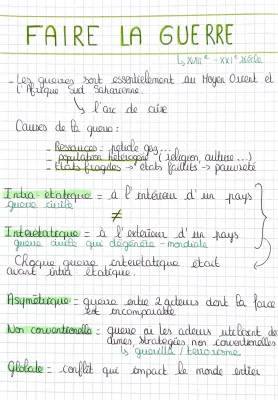 FAIRE LA GUERRE
↳ XVIIIe - XXIe siècle
- Les guerres sont essentiellement au Moyen Orient et
l'Afrique Sud Saharienne.
↳ l'arc de crise
Causes de la guerre :
- Ressources : pétrole gaz ...
- population hétérogène (religion, culture ...)
- États fragiles → états faillits → pauvreté
Intra-étatique = à l'intérieur d'un pays
guerre civile
≠
Interétatique = à l'extérieur d'un pays
guerre civile qui dégénère - mondiale
Chaque guerre interétatique était
avant intra étatique.
Asymétrique = guerre entre 2 acteurs dont la force
est incomparable
Non conventionnelle = guerre où les acteurs utilisent des
armes, stratégies non conventionnelles
↳ guérilla / terrorisme
Globale = conflit qui impact le monde entier